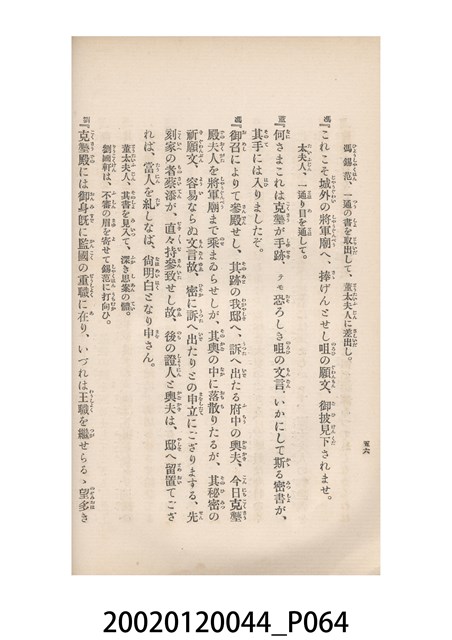 馮錫范、一通の書を取出して、董太夫人に差出し。
馮『これこそ城外の將軍廟へ、捧げんとせし咀の願文、御披見下されませ。
太夫人、一通り目を通して。
董『何さまこれは克𡒉が手跡、テモ恐ろしき咀の文言、いかにして斯る密書が、
其手には入りましたぞ。
馮『御召によりて參殿せし、其跡の我邸へ、訴へ出たる府中の輿夫、今日克𡒉
殿夫人を將軍廟まで乘まゐらせしが、其輿の中に落散りたるが、其秘密の
祈願文、容易ならぬ文言故、密に訴へ出たりとの申立にござりまする、先
刻家の者蔡添が、直々持參致せし故、後の證人と輿夫は、邸へ留置てござ
れば、當人を糺しなば、尙明白となり申さん。
董太夫人、其書を見入て、深き思案の體。
劉國軒は、不審の眉を寄せて錫范に打向ひ。
劉『克𡒉殿には御身旣に監國の重職に在り、いづれは王職を繼せらるゝ望多き
五六
20020120044_P064